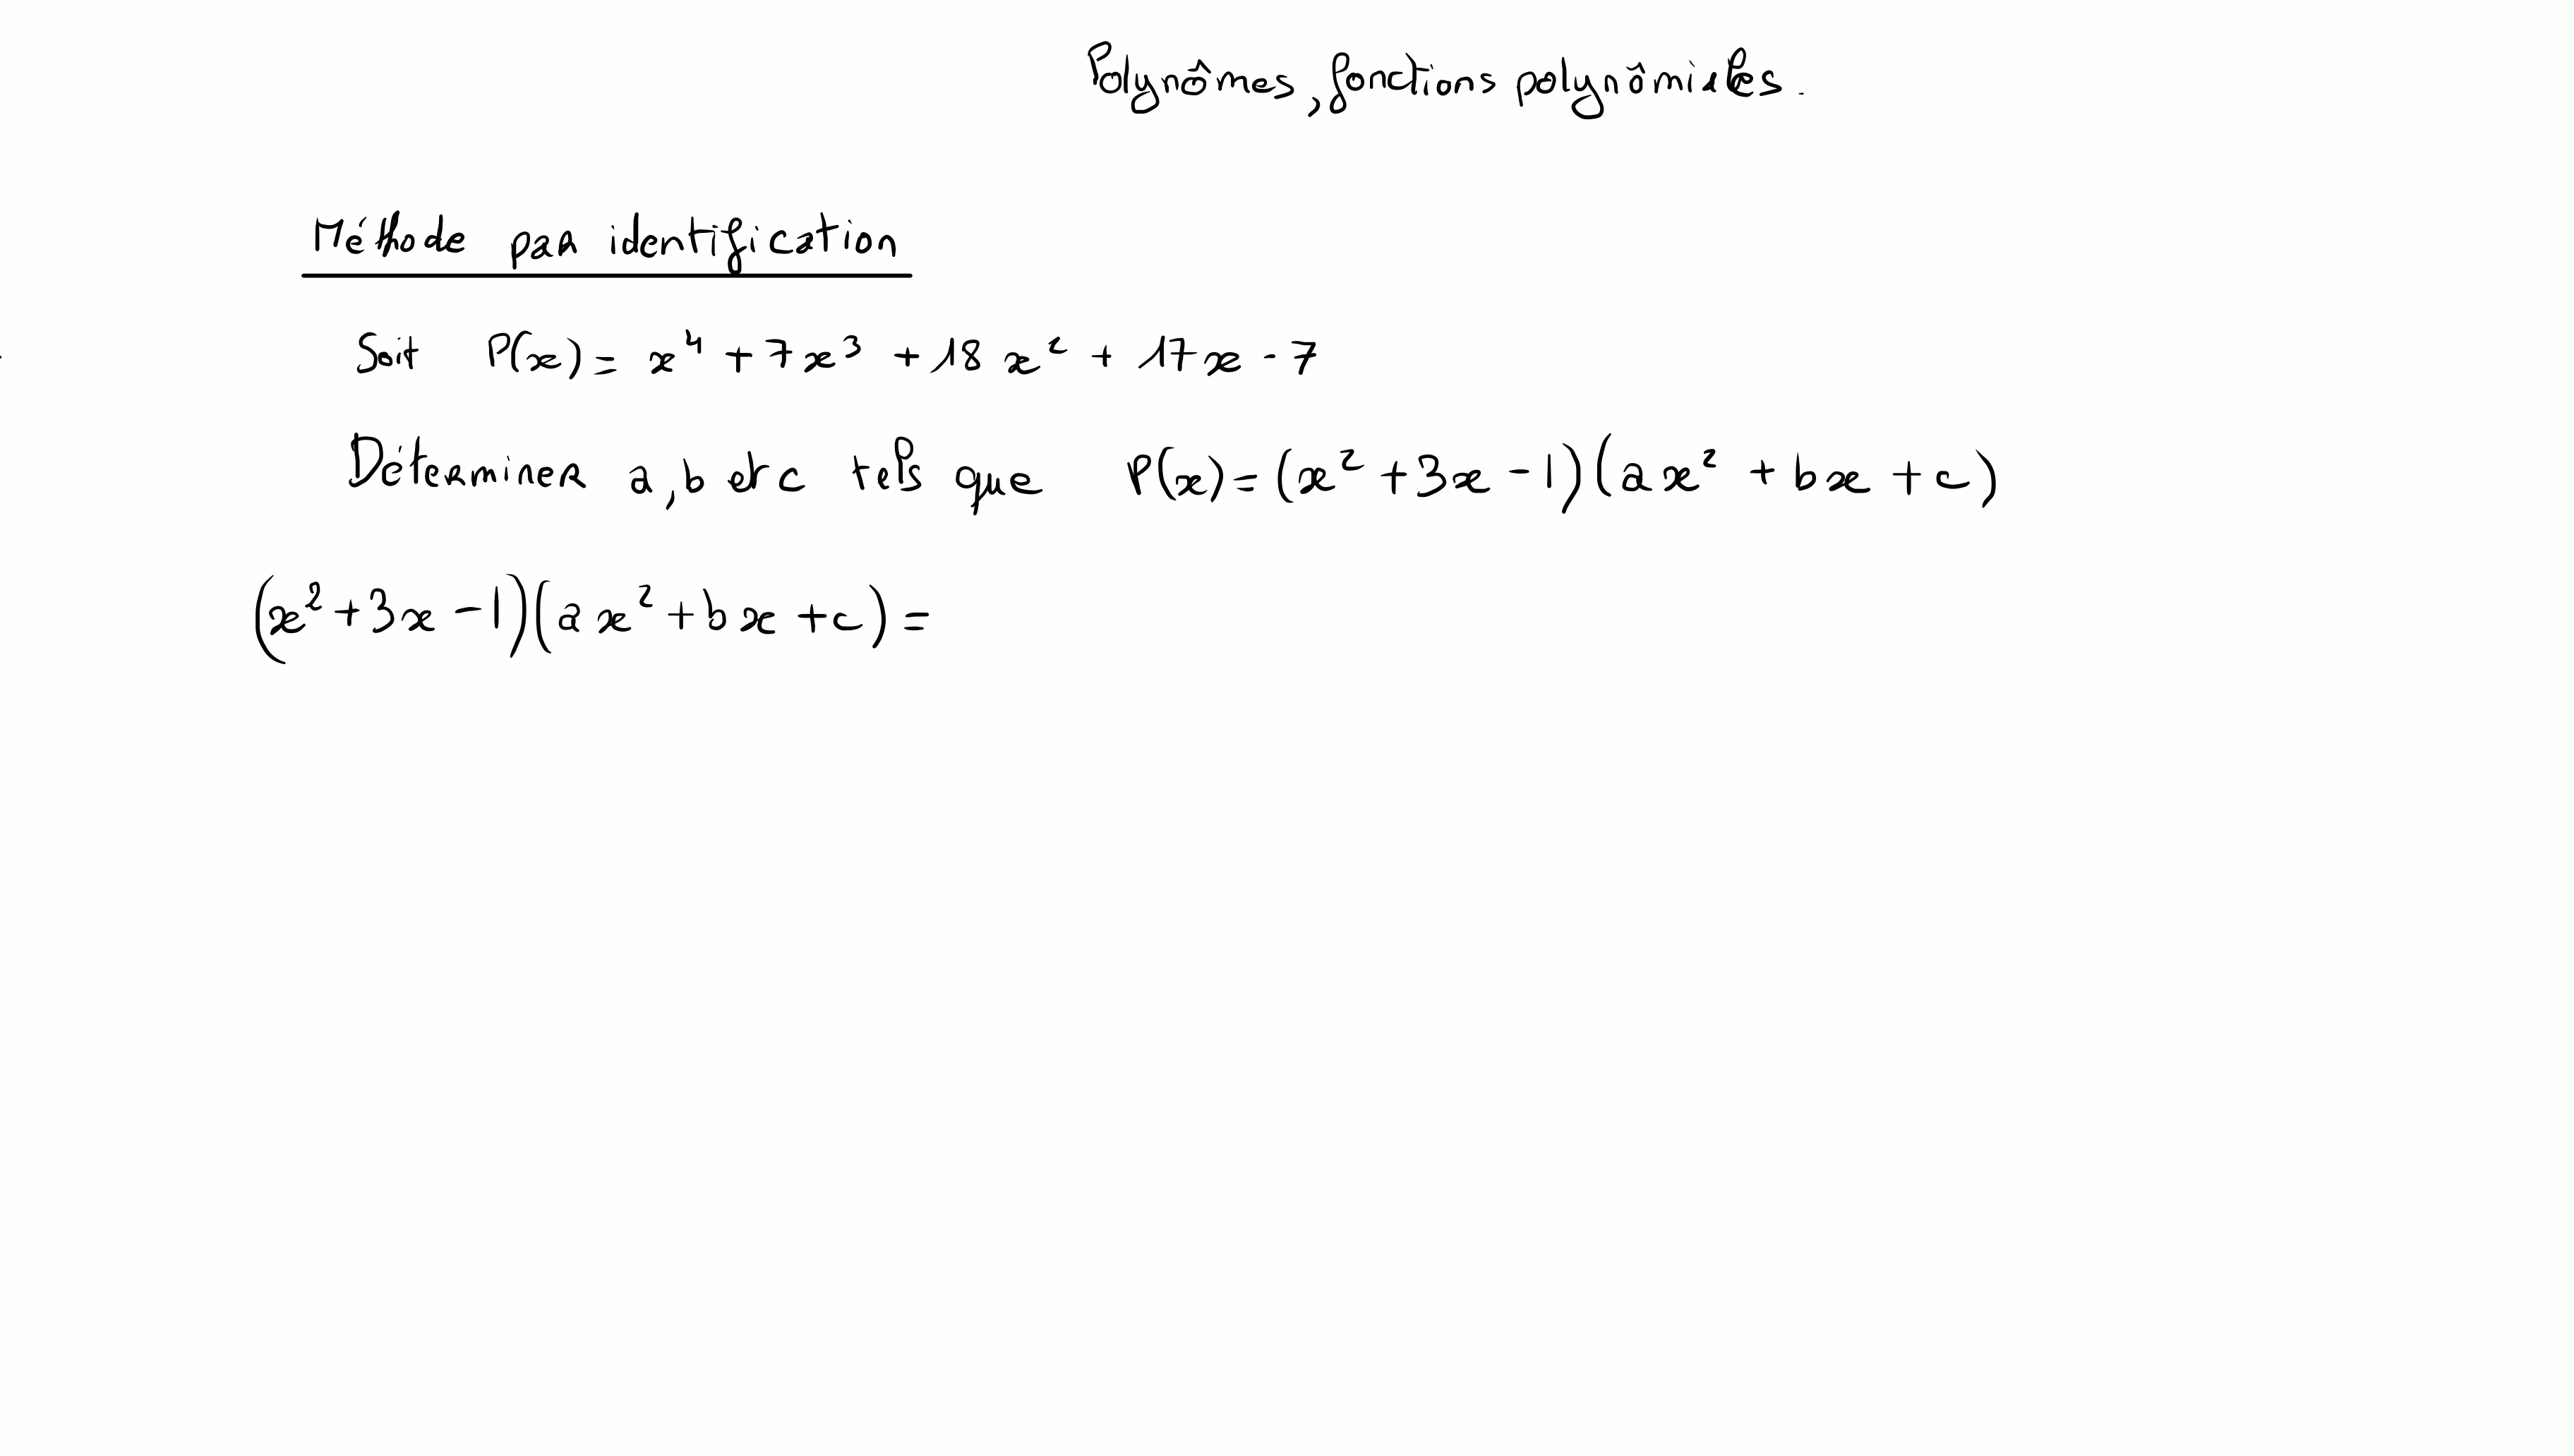 Polynômes, fonctions polynômiales.
Méthode par identification
Soit P(x) = x⁴ + 7x³ + 18x² + 17x - 7
Déterminer a, b et c tels que P(x) = (x² + 3x - 1)(ax² + bx + c)
(x² + 3x - 1)(ax² + bx + c) =